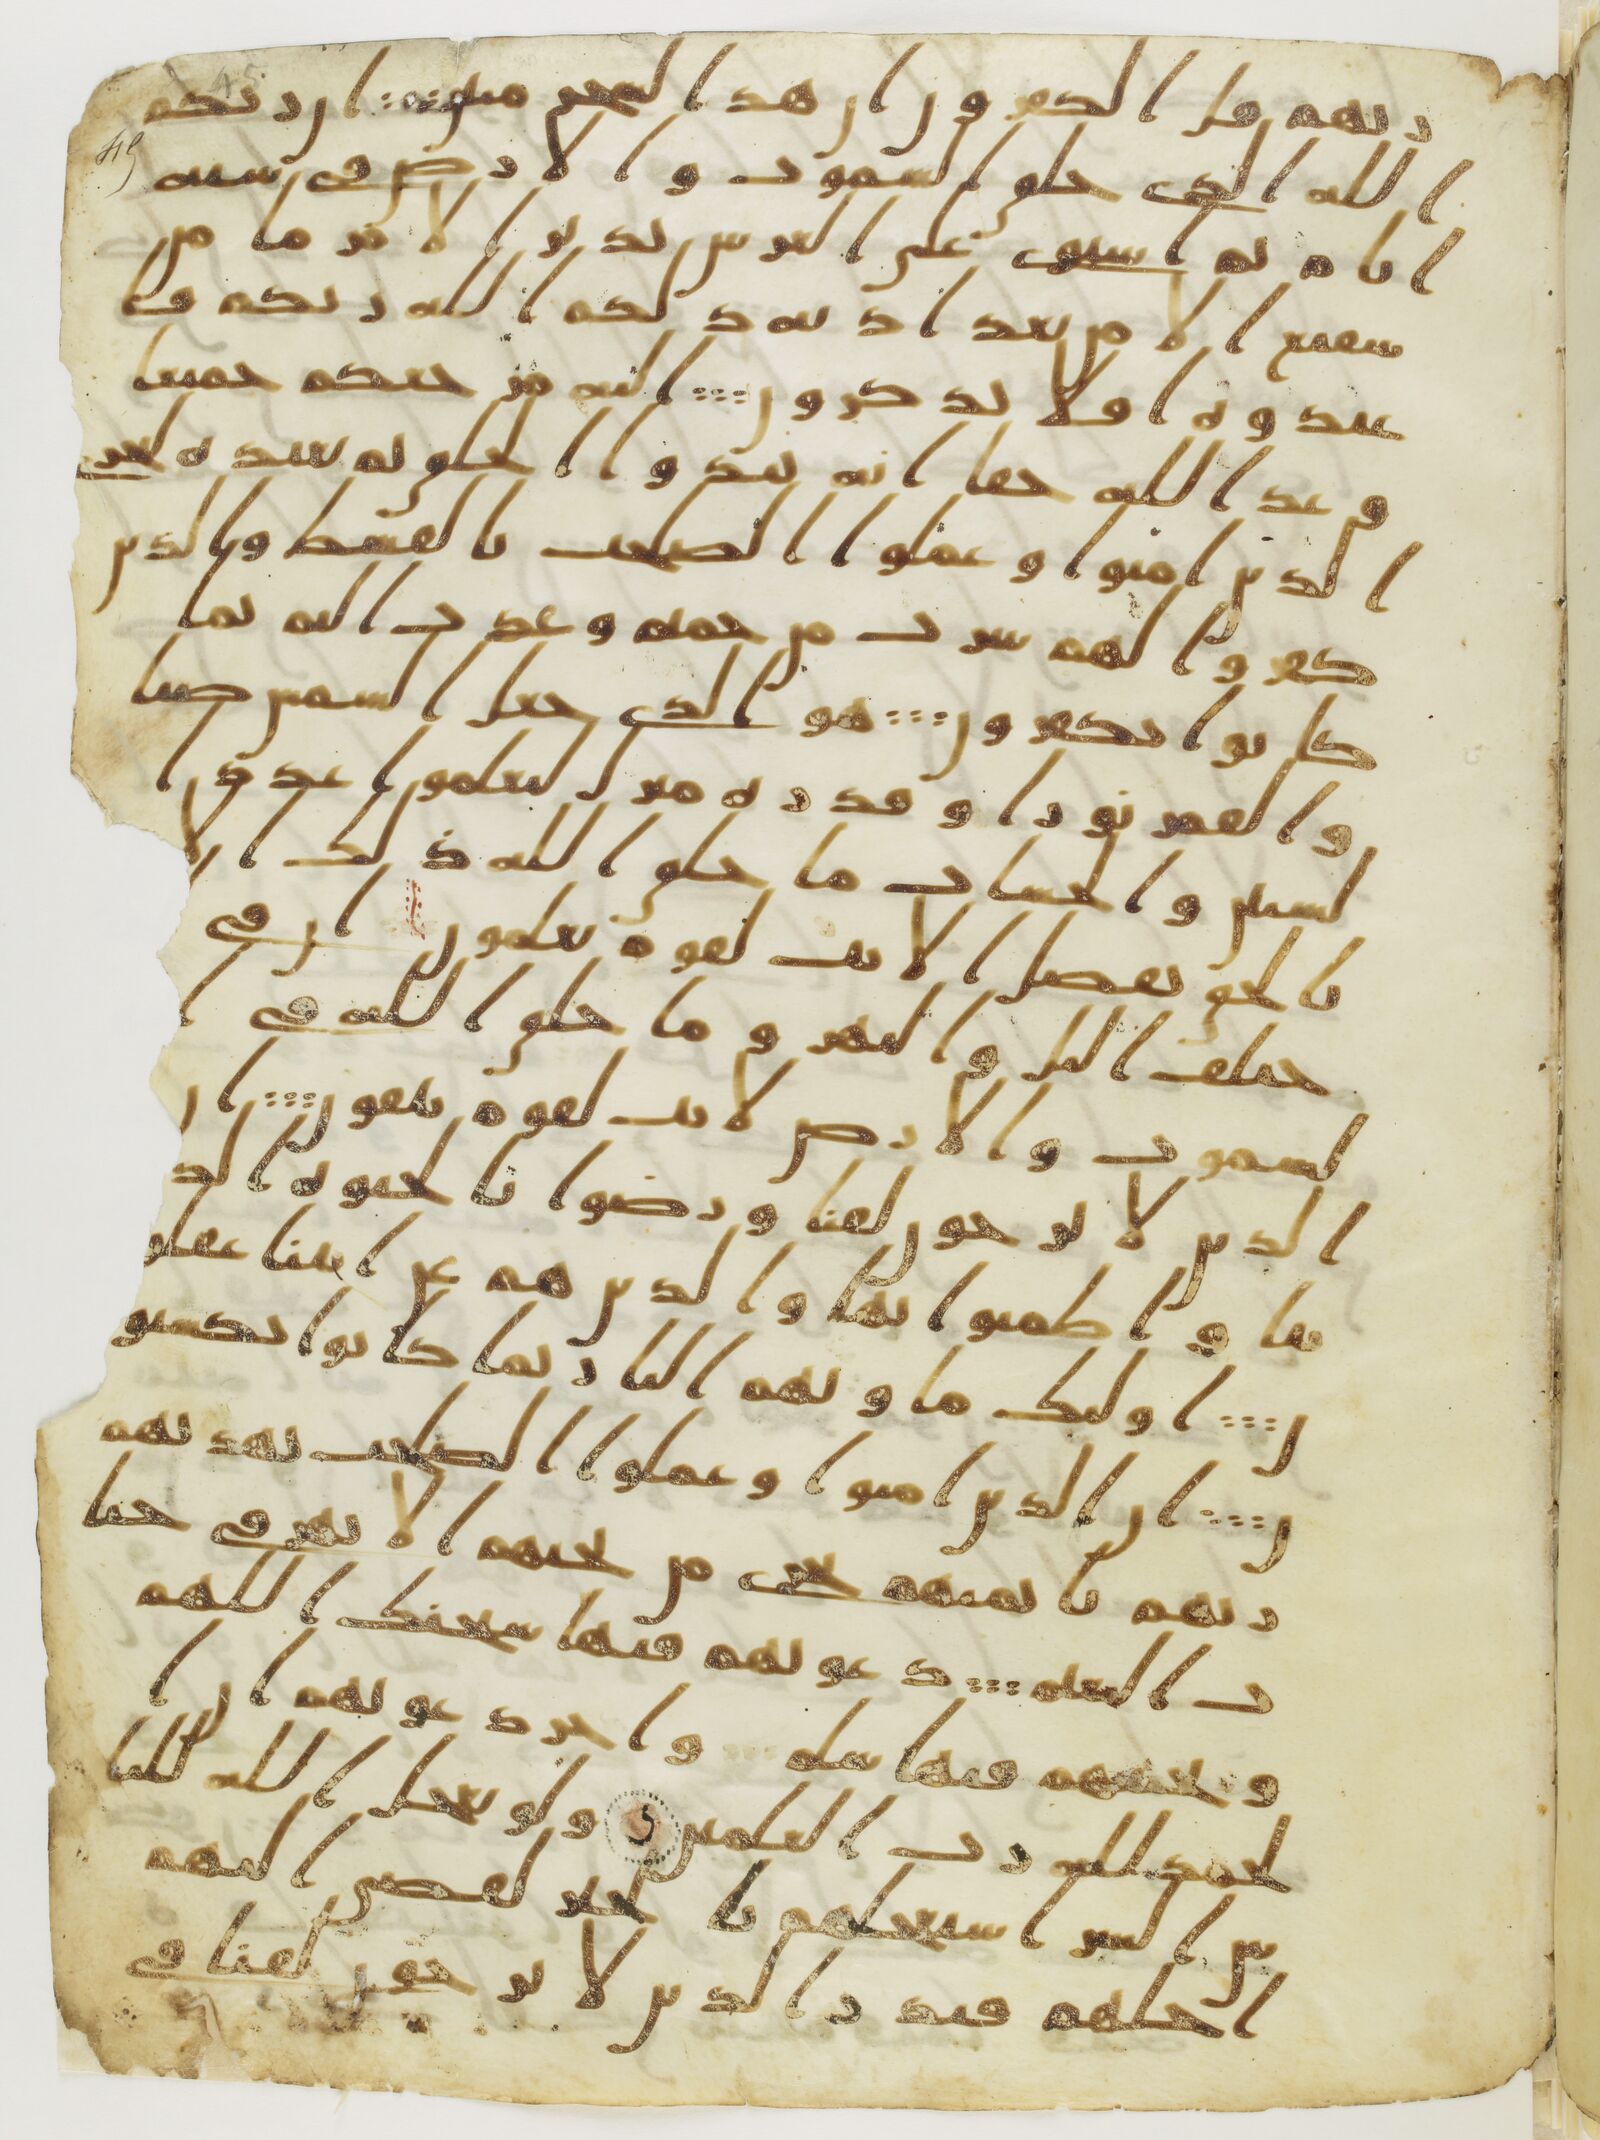 ربهم قل الكفرون ان هذا لسحر مبين ان ربكم
الله الذي خلق السموت والارض في ستة
ايام ثم استوى على العرش يدبر الامر ما من
شفيع الا من بعد اذنه ذلكم الله ربكم فا
عبدوه افلا تذكرون اليه مرجعكم جميعا
وعد الله حقا انه يبدوا الخلق ثم يعيده ليجزي
الذين امنوا وعملوا الصلحت بالقسط والذين
كفروا لهم شرب من حميم وعذب اليم بما
كانوا يكفرون هو الذي جعل الشمس ضيا
والقمر نورا وقدره منزل لتعلموا عدد ا
لسنين والحساب ما خلق الله ذلك الا
بالحق نفصل الايت لقوم يعلمون ان في
ختلف اليل والنهر وما خلق الله في ا
لسموت والارض لايت لقوم يتقون ان
الذين لا يرجون لقنا ورضوا بالحيوه الد
نيا واطمنوا بها والذين هم عن ايتنا غفلو
ن اوليك ماويهم النار بما كانوا يكسبو
ن ان الذين امنوا وعملوا الصلحت يهديهم
ربهم بايمنهم تجري من تحتهم الانهر في جنا
ت النعيم دعويهم فيها سبحنك اللهم
وتحيتهم فيها سلم واخر دعويهم ان ا
لحمد لله رب العلمين ولو يعجل الله للنا
س الشر استعجلهم بالخير لقضي اليهم
اجلهم فنذر الذين لا يرجون لقنا في